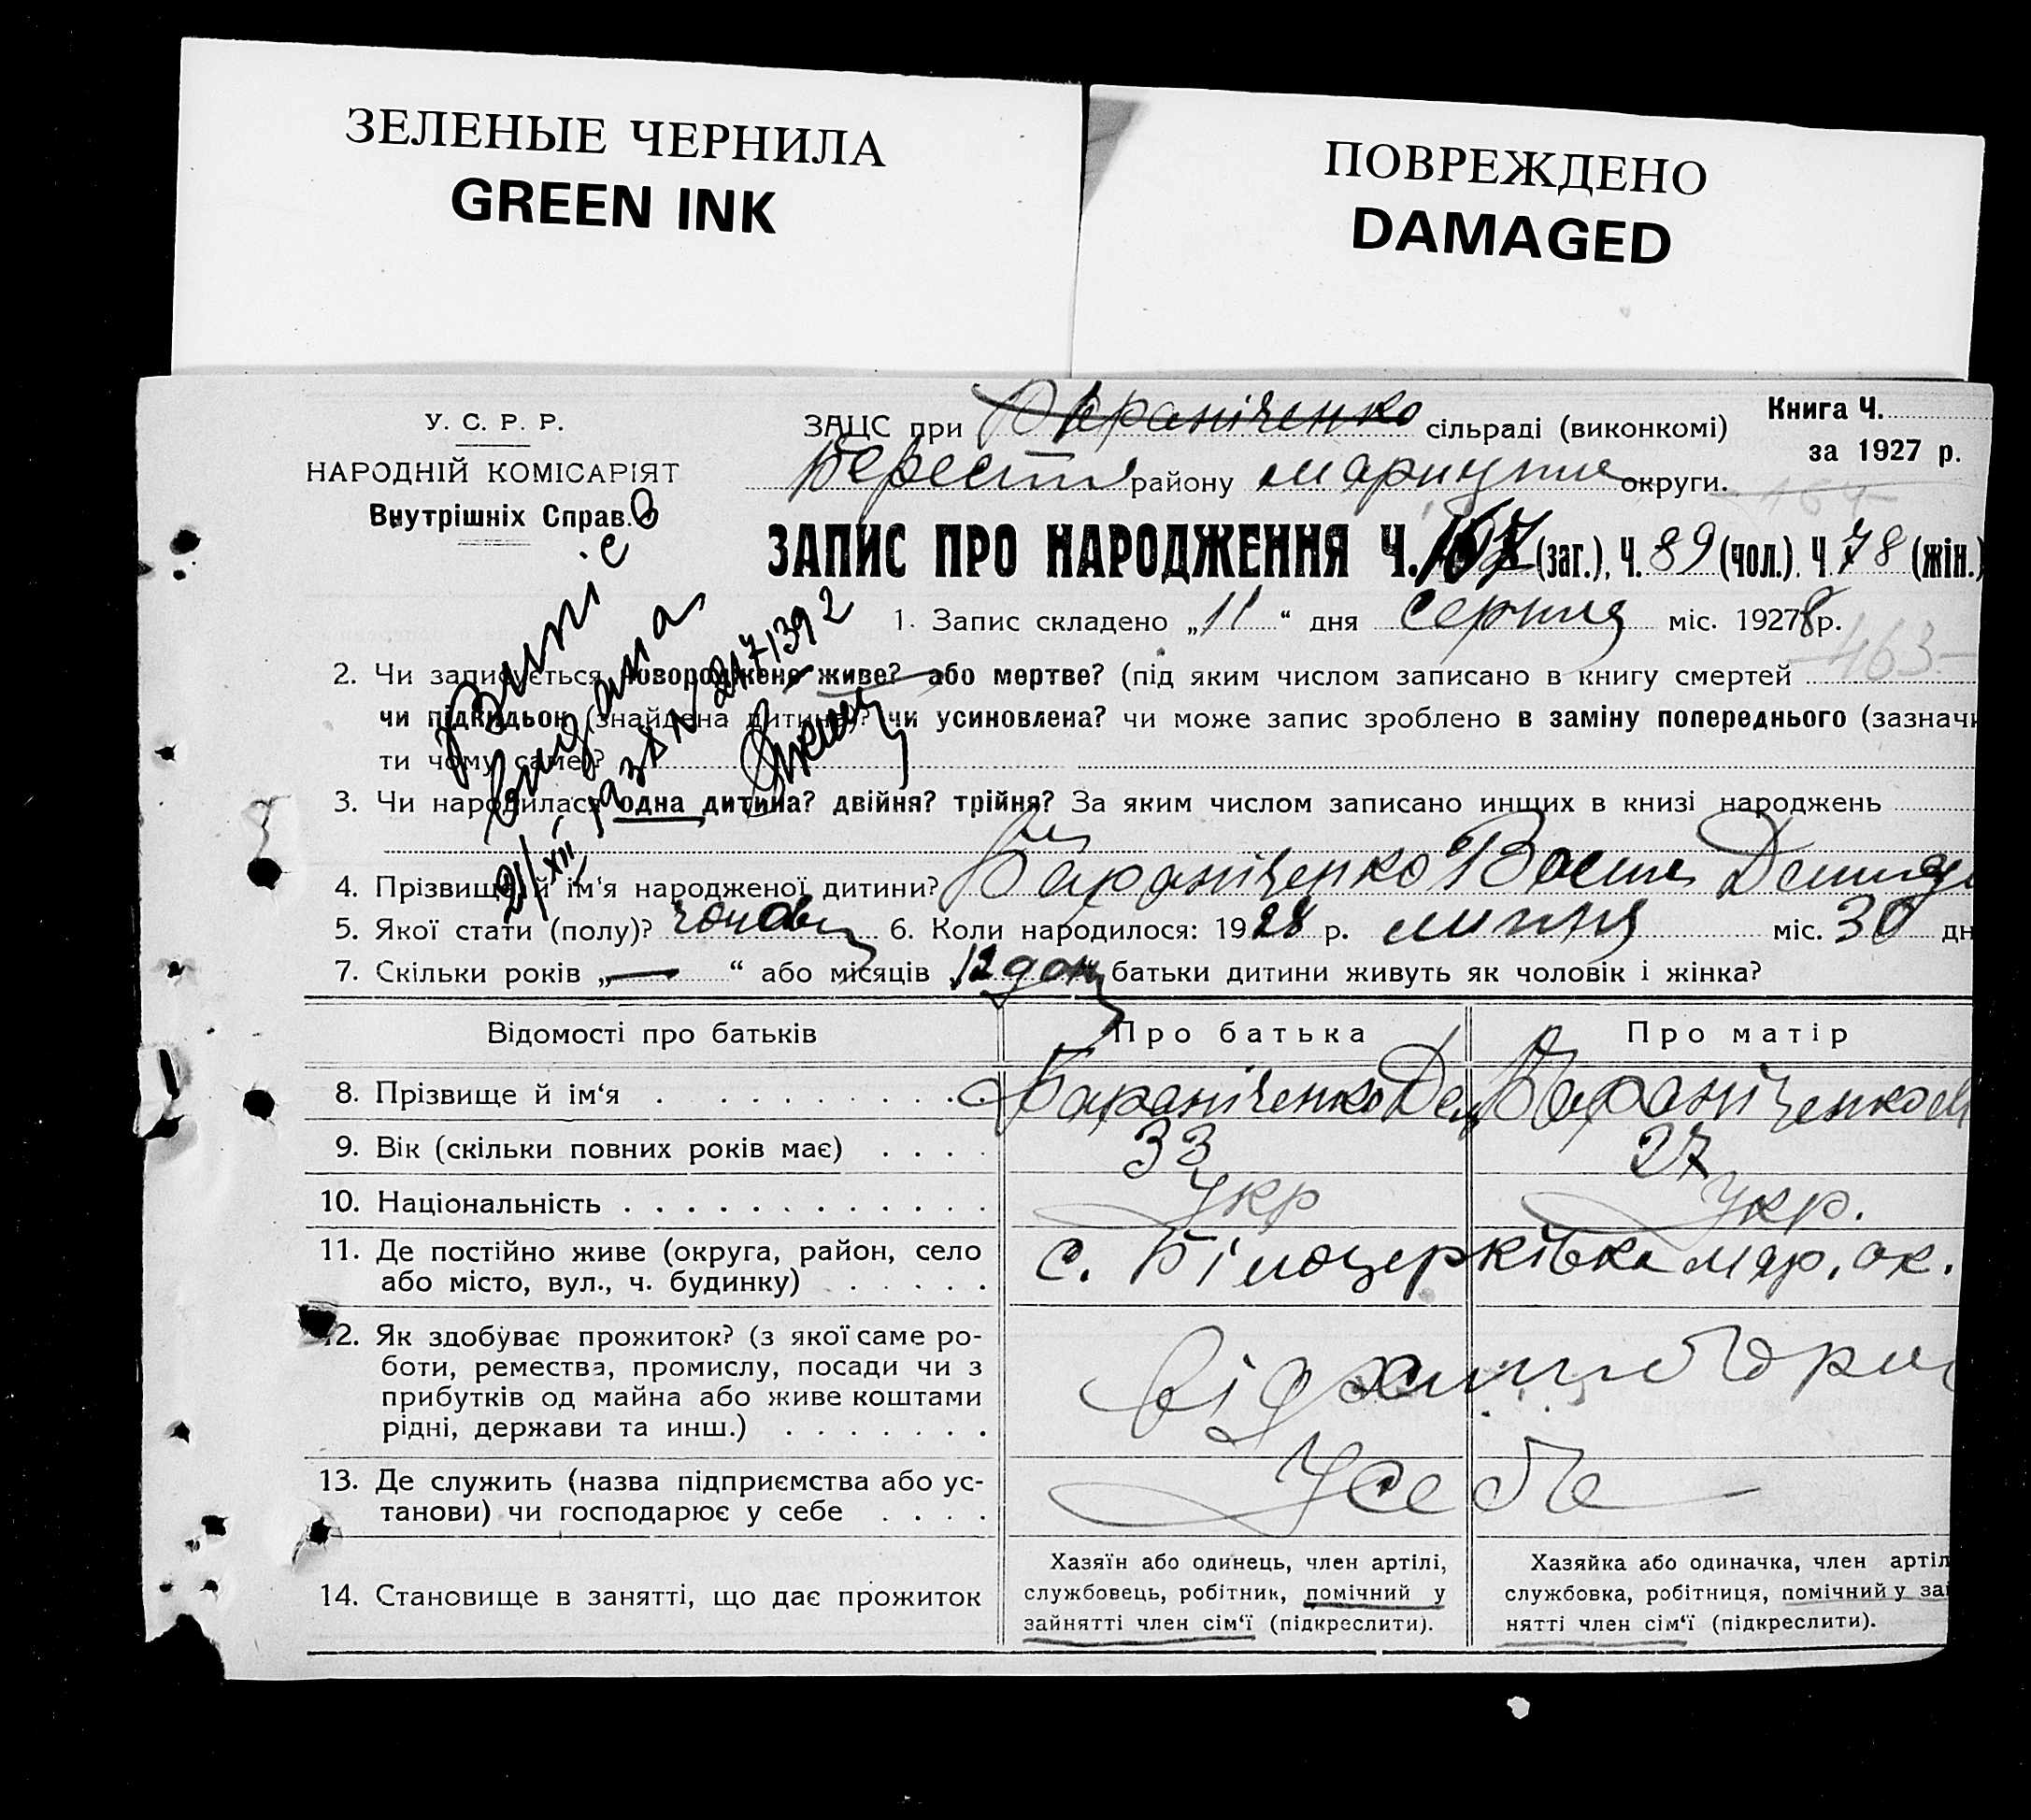 ЗЕЛЕНЫЕ ЧЕРНИЛА
GREEN INK
ПОВРЕЖДЕНО
DAMAGED
У. С. Р. Р.
НАРОДНІЙ КОМІСАРІЯТ
Внутрішніх Справ.
ЗАЦС при Бараніченко сільраді (виконкомі)
Книга Ч.
за 1927 р.
району округи.
ЗАПИС ПРО НАРОДЖЕННЯ Ч. 167 (заг.), Ч. 89 (чол.), Ч. 78 (жін.)
1. Запис складено „11“ дня серпня міс. 1928 р.
463
2. Чи записується новороджене живе? або мертве? (під яким числом записано в книгу смертей
чи підкидьок (знайдена дитина)? чи усиновлена? чи може запис зроблено в заміну попереднього (зазначи
ти чому саме)?
3. Чи народилася одна дитина? двійня? трійня? За яким числом записано инших в книзі народжень
4. Прізвище й ім‘я народженої дитини? Бараніченко
5. Якої стати (полу)? 6. Коли народилося: 1928 р. липня міс. 30 дн
7. Скільки років „—“ або місяців 12 батьки дитини живуть як чоловік і жінка?
Відомості про батьків
Про батька
Про матір
8. Прізвище й ім‘я Бараніченко Дем Бараніченко М
9. Вік (скільки повних років має) 33 27
10. Національність Укр Укр.
11. Де постійно живе (округа, район, село
або місто, вул., ч. будинку)
с. Білоцерківка мар. ок.
12. Як здобуває прожиток? (з якої саме ро-
боти, ремества, промислу, посади чи з
прибутків од майна або живе коштами
рідні, держави та инш.)
від
13. Де служить (назва підприємства або ус-
танови) чи господарює у себе
У себе
14. Становище в занятті, що дає прожиток
Хазяїн або одинець, член артілі,
службовець, робітник, помічний у
зайнятті член сім‘ї (підкреслити).
Хазяйка або одиначка, член артіл
службовка, робітниця, помічний у зай
нятті член сім‘ї (підкреслити).